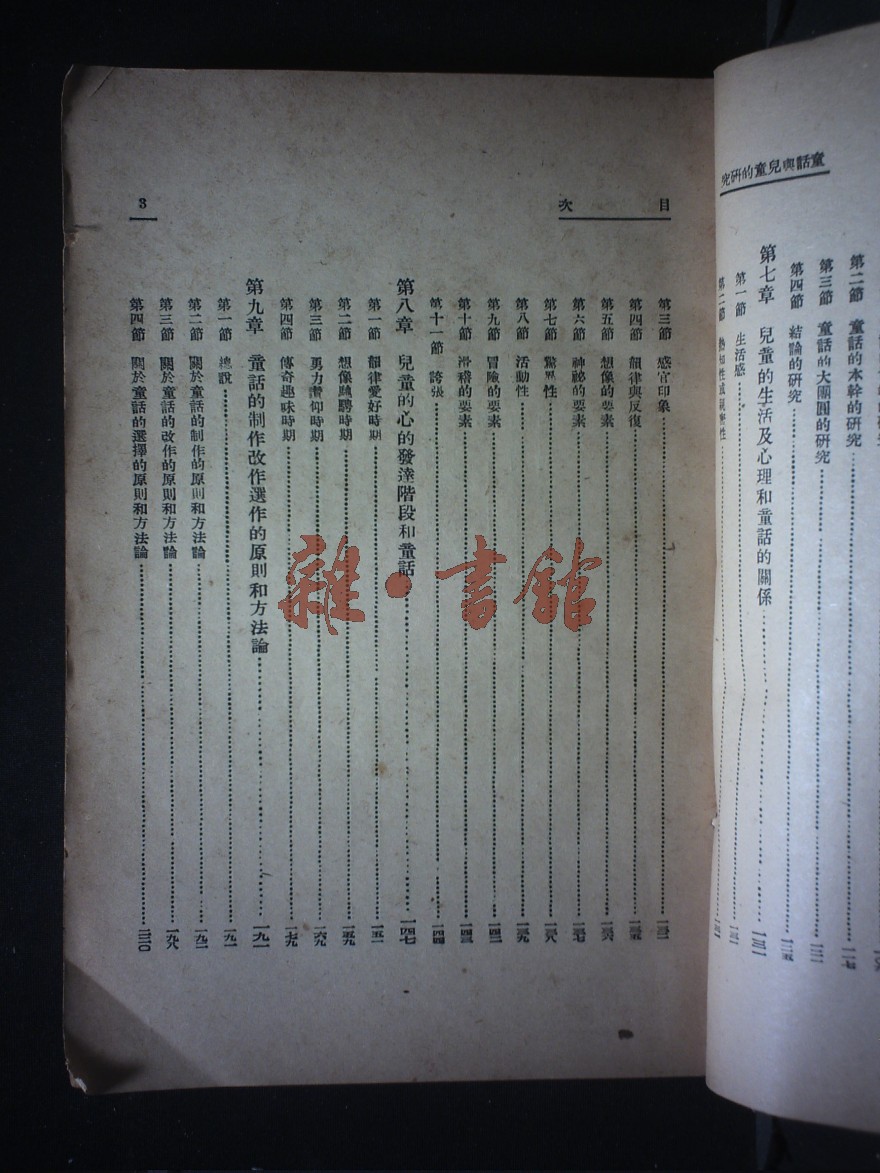 童話與兒童的研究
第二節　童話的本幹的研究……一一七
第三節　童話的大團圓的研究……一二二
第四節　結論的研究……一二五
第七章　兒童的生活及心理和童話的關係……一三一
第一節　生活感……一三一
第二節
目次
3
第三節　感官印象……一三二
第四節　韻律與反復……一三五
第五節　想像的要素……一三六
第六節　神祕的要素……一三七
第七節　驚異性……一三八
第八節　活動性……一三九
第九節　冒險的要素……一四二
第十節　滑稽的要素……一四三
第十一節　誇張……一四四
第八章　兒童的心的發達階段和童話……一四七
第一節　韻律愛好時期……一五一
第二節　想像馳騁時期……一五九
第三節　勇力讚仰時期……一六九
第四節　傳奇趣味時期……一七九
第九章　童話的制作改作選作的原則和方法論……一九一
第一節　總說……一九一
第二節　關於童話的制作的原則和方法論……一九二
第三節　關於童話的改作的原則和方法論……一九八
第四節　關於童話的選擇的原則和方法論……二二〇
雜·書館